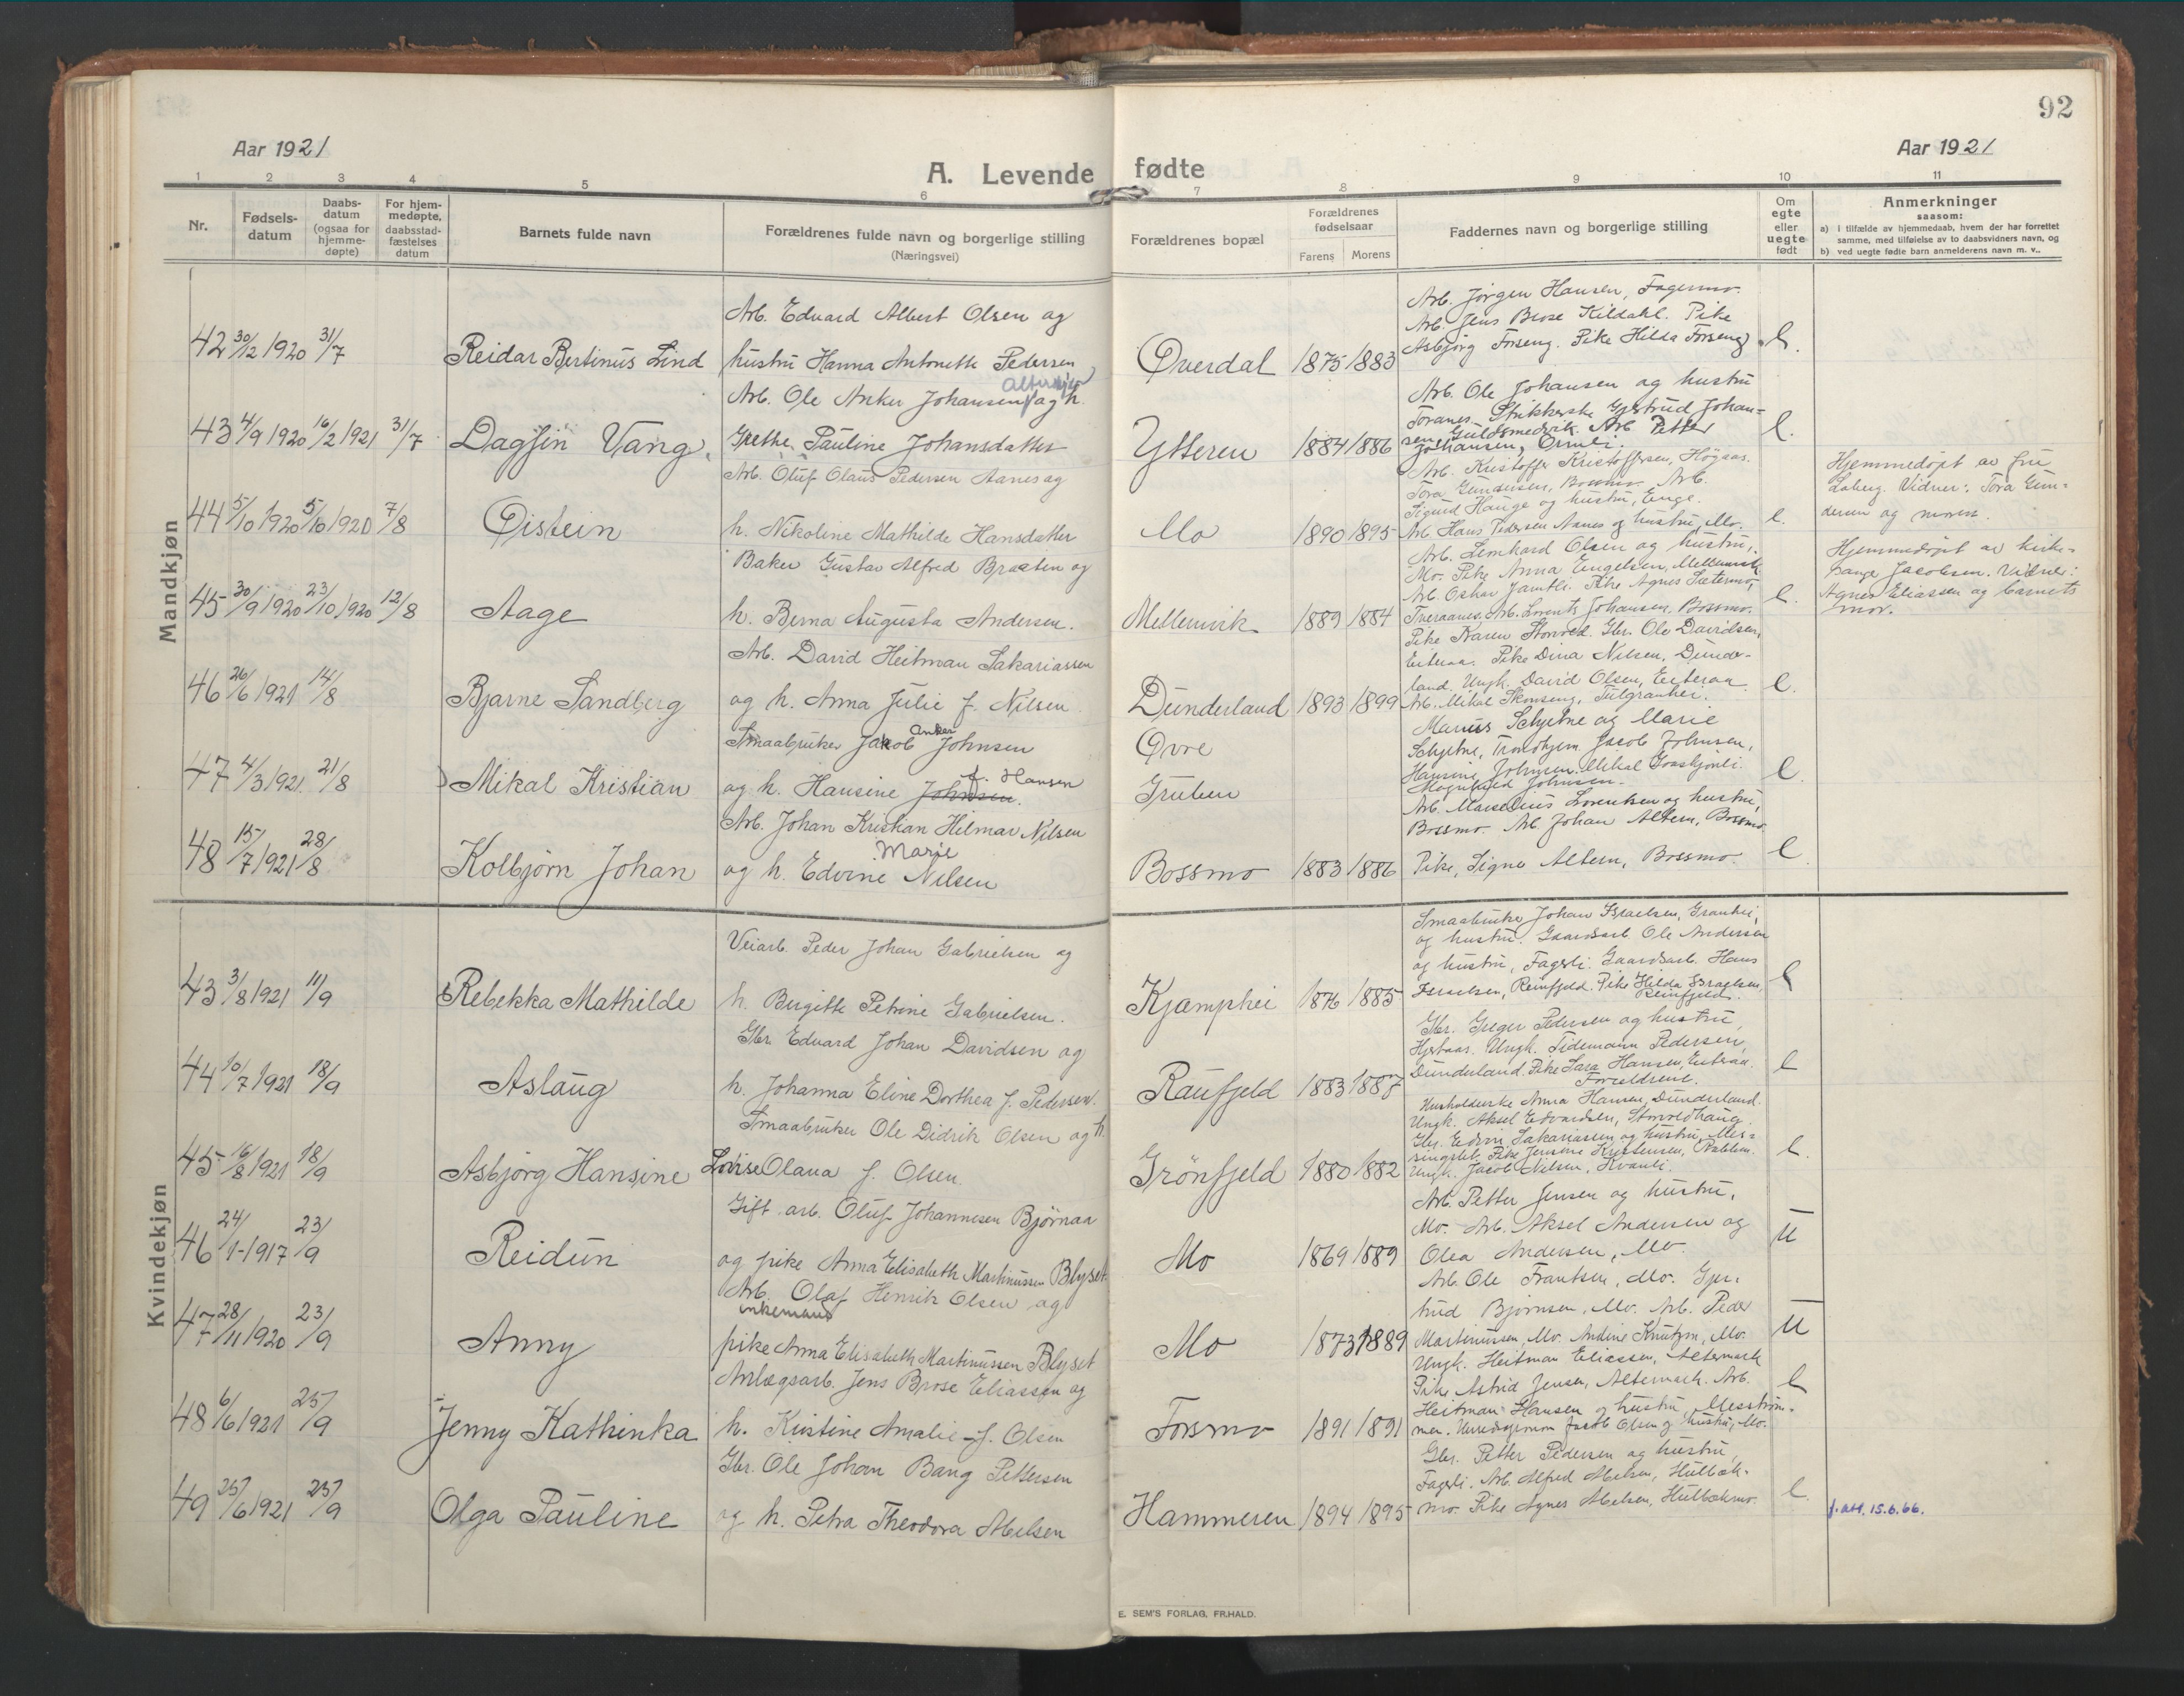 92
Aar 1921
Aar 1921
A. Levende fødte
1 2 3 4 5 6 7 8 9 10 11
Nr.
Fødsels-
datum
Daabs-
datum
(ogsaa for
hjemme-
døpte)
For hjem-
medøpte,
daabsstad-
fæstelses
datum
Barnets fulde navn
Forældrenes fulde navn og borgerlige stilling
(Næringsvei)
Forældrenes bopæl
Forældrenes
fødselsaar
Farens Morens
Faddernes navn og borgerlige stilling
Om
egte
eller
uegte
født
Anmerkninger
saasom:
a) i tilfælde av hjemmedaab, hvem der har forrettet
samme, med tilføielse av to daabsvidners navn, og
b) ved uegte fødte barn anmelderens navn m. v..
Mandkjøn
42 30/12 1920 31/7
Reidar Bertinus Lind
Arb. Edvard Albert Olsen og
hustru Hanna Antonette Pedersen
Øverdal 1875 1883
Arb. Jørgen Hansen, Fagermo.
Arb. Jens Brose Kildahl. Pike
Asbjørg Forseng. Pike Hilda Forseng
e.
43 4/9 1920 16/2 1921 31/7
Dagfin Vang.
Arb. Ole Anker Johansen og h.
Grethe Pauline Johansdatter
Ytteren 1884 1886
Arb. Ole Johansen og hustru
Toranes. Strikkerske Gjertrud Johan-
sen, Guldsmedvik. Arb. Petter
Johansen, Ørnli.
e.
44 5/10 1920 5/10 1920 7/8
Øistein
Arb. Oluf Olaus Pedersen Aanes og
h. Nikoline Mathilde Hansdatter
Mo 1890 1895
Arb. Kristoffer Kristoffersen, Høgaas.
Tora Gundersen, Bossmo. Arb.
Sigurd Hauge og hustru, Enge.
Arb. Hans Pedersen Aanes og hustru, Mo.
e.
Hjemmedøpt av fru
Loberg. Vidner: Tora Gun-
dersen og moren.
45 30/9 1920 23/10 1920 12/8
Aage
Baker Gustav Alfred Braaten og
h. Berna Augusta Andersen.
Mellemvik 1889 1884
Arb. Lenhard Olsen og hustru,
Mo. Pike Anna Engelsen, Mellemvik
Arb. Oskar Jamtli. Pike Agnes Sætermo,
Tveraanes. Arb. Lorents Johansen, Bossmo.
e.
Hjemmedøpt av kirke-
sanger Jacobsen. Vidner:
Agnes Eliassen og barnets
mor.
46 26/6 1921 14/8
Bjarne Sandberg
Arb. David Heitman Sakariassen
og h. Anna Julie f. Nilsen
Dunderland 1893 1899
Pike Karen Storvold. Gbr. Ole Davidsen,
Eiteraa. Pike Dina Nilsen, Dunder-
land. Ungk. David Olsen, Eiteraa.
Arb. Mikal Skonseng,
e.
47 4/3 1921 21/8
Mikal Kristian
Smaabruker Jakob Anker Johnsen
og h. Hansine Johnsen. f. Hansen
Øvre
Gruben
Marius Schjetne og Marie
Schjetne, Trondhjem. Jacob Johnsen,
Hansine Johnsen. Mikal
Magnhild Johnsen.
e.
48 15/7 1921 28/8
Kolbjørn Johan
Arb. Johan Kristian Hilmar Nilsen
og h. Edvine Marie Nilsen
Bossmo 1883 1886
Arb. Marselius Lorentsen og hustru,
Bossmo. Arb. Johan Altern, Bossmo.
Pike, Signe Altern, Bossmo.
e.
Kvindekjøn
43 3/8 1921 11/9
Rebekka Mathilde
Veiarb. Peder Johan Gabrielsen og
h. Birgitte Petrine Gabrielsen.
Kjæmphei 1876 1885
Smaabruker Johan Israelsen, Granhei,
og hustru. Gaardsarb. Ole Andersen
og hustru, Fagerli. Gaardsarb. Hans
Israelsen, Reinfjeld. Pike Hilda Israelsen,
Reinfjeld.
e
44 10/7 1921 18/9
Aslaug
Gbr. Edvard Johan Davidsen og
h. Johanna Eline Dorthea f. Pedersen.
Raufjeld 1883 1887
Gbr. Greger Pedersen og hustru,
Hjertaas. Ungk. Tidemann Pedersen,
Dunderland. Pike Sara Hansen, Eiteraa.
Forældrene.
e
45 16/8 1921 18/9
Asbjørg Hansine
Smaabruker Ole Didrik Olsen og h.
Lovise Olava f. Olsen.
Grønfjeld 1880 1882
Husholderske Anna Hansen, Dunderland.
Ungk. Aksel Edvardsen, Storvoldhaug.
Gbr. Edvin Sakariassen og hustru, Mes-
singslet. Pike Jensine Kristensen,
Ungk. Jacob Nilsen, Kvanli.
e.
46 24/1-1917 23/9
Reidun
Gift arb. Oluf Johannesen Bjørnaa
og pike Anna Elisabeth Martinussen Blyset
Mo 1869 1889
Arb. Petter Jensen og hustru,
Mo. Arb. Aksel Andersen og
Olea Andersen, Mo.
U
47 28/11 1920 23/9
Anny
Arb. Olaf Henrik Olsen og
enkemand
pike Anna Elisabeth Martinussen Blyset
Mo 1873 1889
Arb. Ole Frantsen, Mo. Gjer-
trud Bjørnsen, Mo. Arb. Peder
Martinussen, Mo. Andine Knutsen, Mo.
U
48 6/6 1921 25/9
Jenny Kathinka
Anlægsarb. Jens Brose Eliassen og
h. Kristine Amalie f. Olsen
Forsmo 1891 1891
Ungk. Heitman Eliassen, Altermark
Pike Astrid Jensen, Altermark. Arb.
Heitman Hansen og hustru, Messtrøm-
men. Jacob Olsen og hustru, Mo.
e
49 25/6 1921 25/9
Olga Pauline
Gbr. Ole Johan Bang Pettersen
og h. Petra Theodora Abelsen
Hammeren 1894 1895
Gbr. Petter Pedersen og hustru,
Fagerli. Arb. Alfred Abelsen, Hulbæk-
mo. Pike Agnes Abelsen, Hulbækmo.
e.
f.att. 15.6.66.
E. SEM'S FORLAG, FR.HALD.